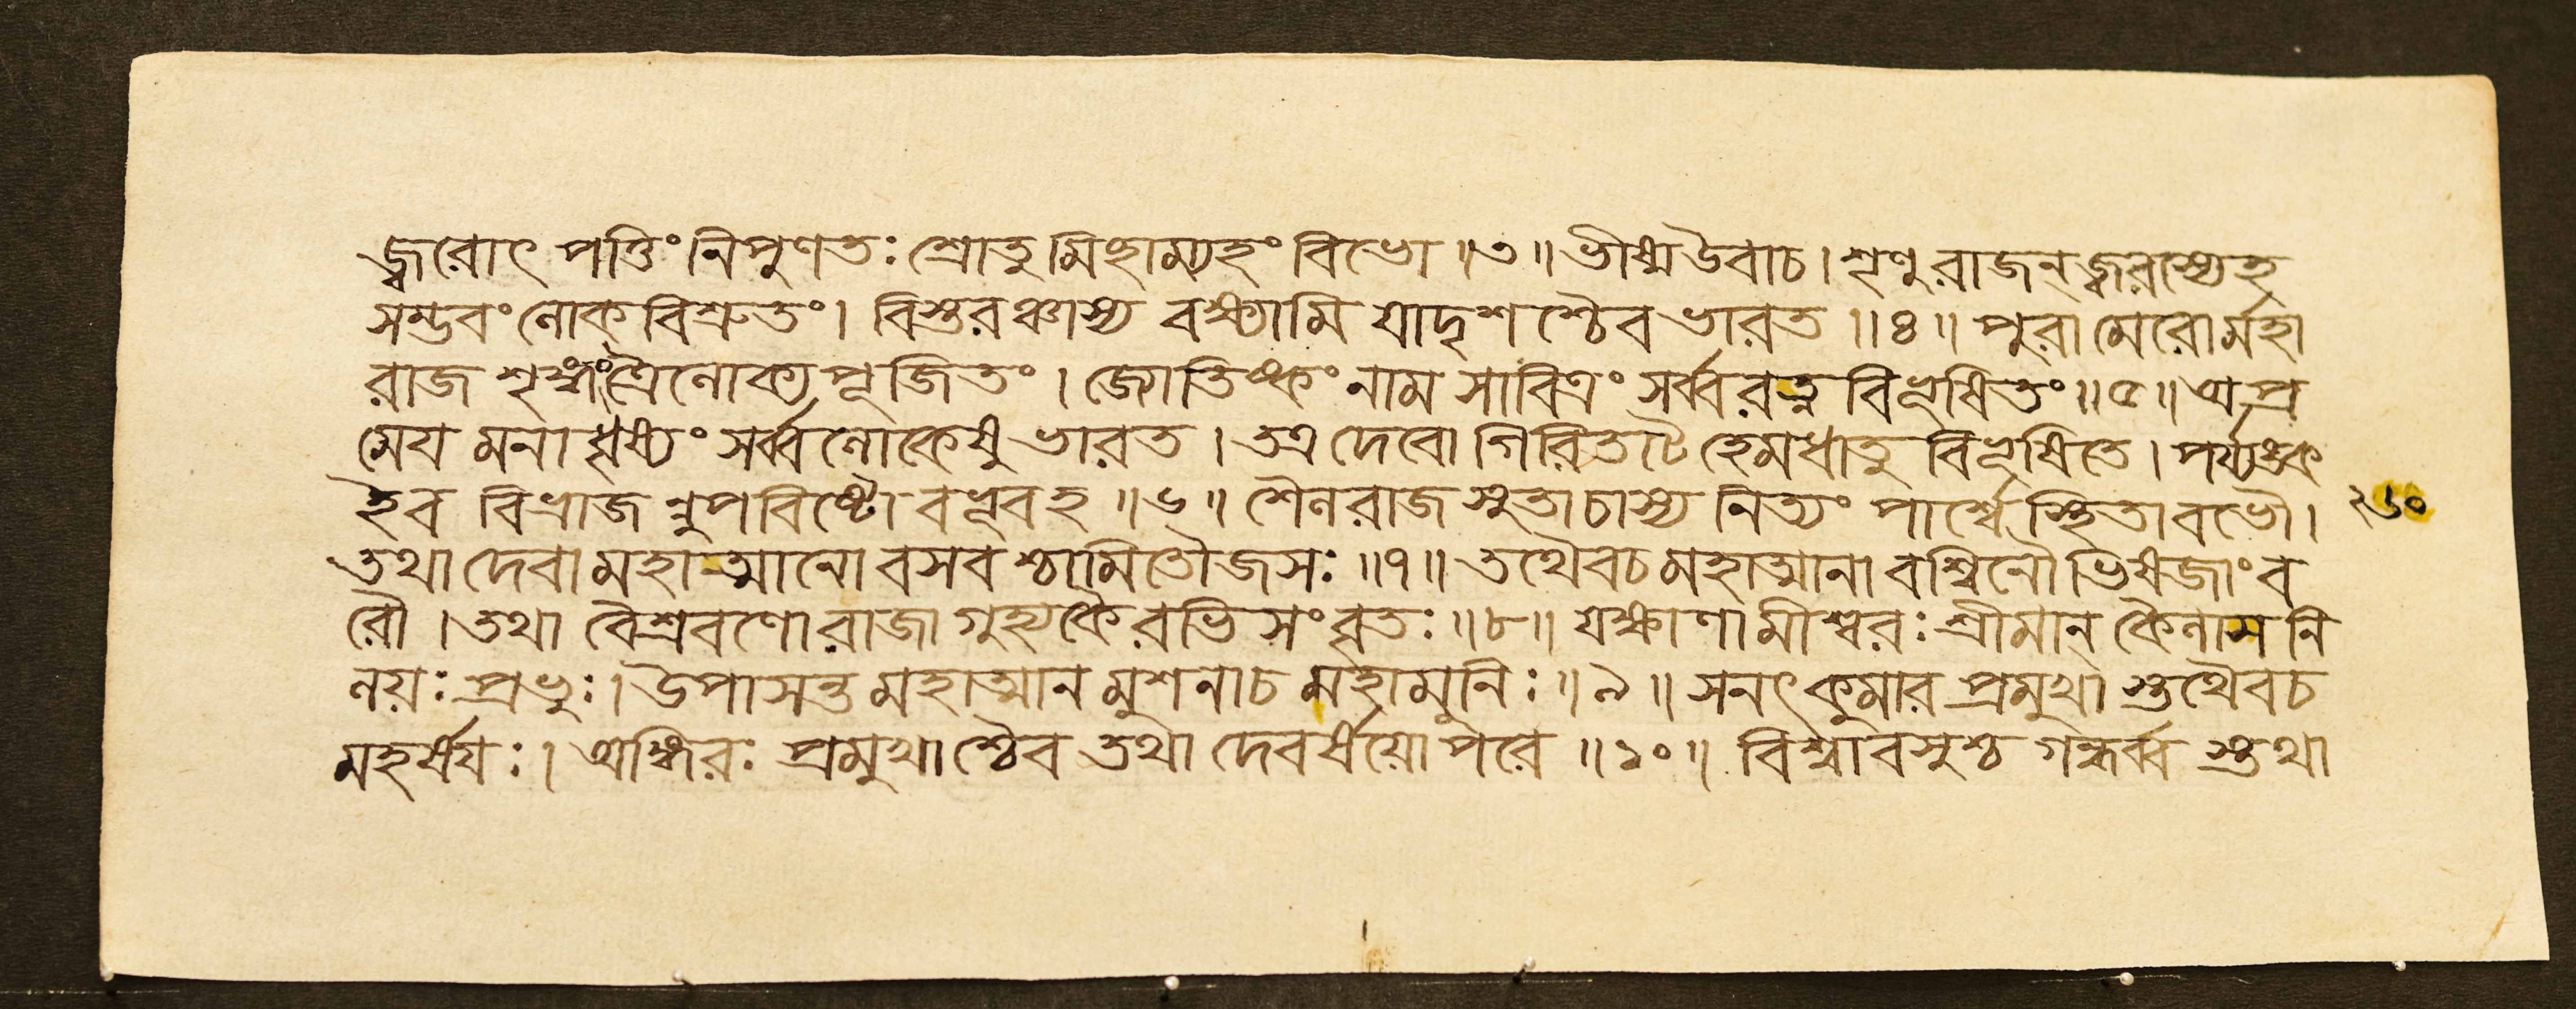 জ্বরোৎপত্তিং নিপুণতঃ শ্রোতুমিচ্ছাম্যহং বিভো ॥৩॥ ভীষ্ম উবাচ। শৃণু রাজন্ জ্বরস্যেহ
সম্ভবং লোকবিশ্রুতং। বিস্তরঞ্চাস্য বক্ষ্যামি যাদৃশশ্চৈব ভারত ॥৪॥ পুরা মেরোর্মহা
রাজ শৃঙ্গং ত্রৈলোক্যপূজিতং। জ্যোতিষ্কং নাম সাবিত্রং সর্ব্বরত্নবিভূষিতং ॥৫॥ অপ্র
মেয়মনাধৃষ্যং সর্ব্বলোকেষু ভারত। তত্র দেবো গিরিতটে হেমধাতুবিভূষিতে। পর্য্যঙ্ক
ইব বিভ্রাজন্নুপবিষ্টো বভূবহ ॥৬॥ শৈলরাজসুতা চাস্য নিত্যং পার্শ্বে স্থিতা বভৌ।
২৬০
তথা দেবা মহাত্মানো বসবশ্চামিতৌজসঃ ॥৭॥ তথৈবচ মহাত্মানাবশ্বিনৌ ভিষজাং ব
রৌ। তথা বৈশ্রবণো রাজা গুহ্যকৈরভিসংবৃতঃ ॥৮॥ যক্ষাণামীশ্বরঃ শ্রীমান্ কৈলাসনি
লয়ঃ প্রভুঃ। উপাসন্ত মহাত্মানমুশনাচ মহামুনিঃ ॥৯॥ সনৎকুমারপ্রমুখাস্তথৈবচ
মহর্ষয়ঃ। অঙ্গিরঃপ্রমুখাশ্চৈব তথা দেবর্ষয়োপরে ॥১০॥ বিশ্বাবসুশ্চ গন্ধর্ব্বস্তথা